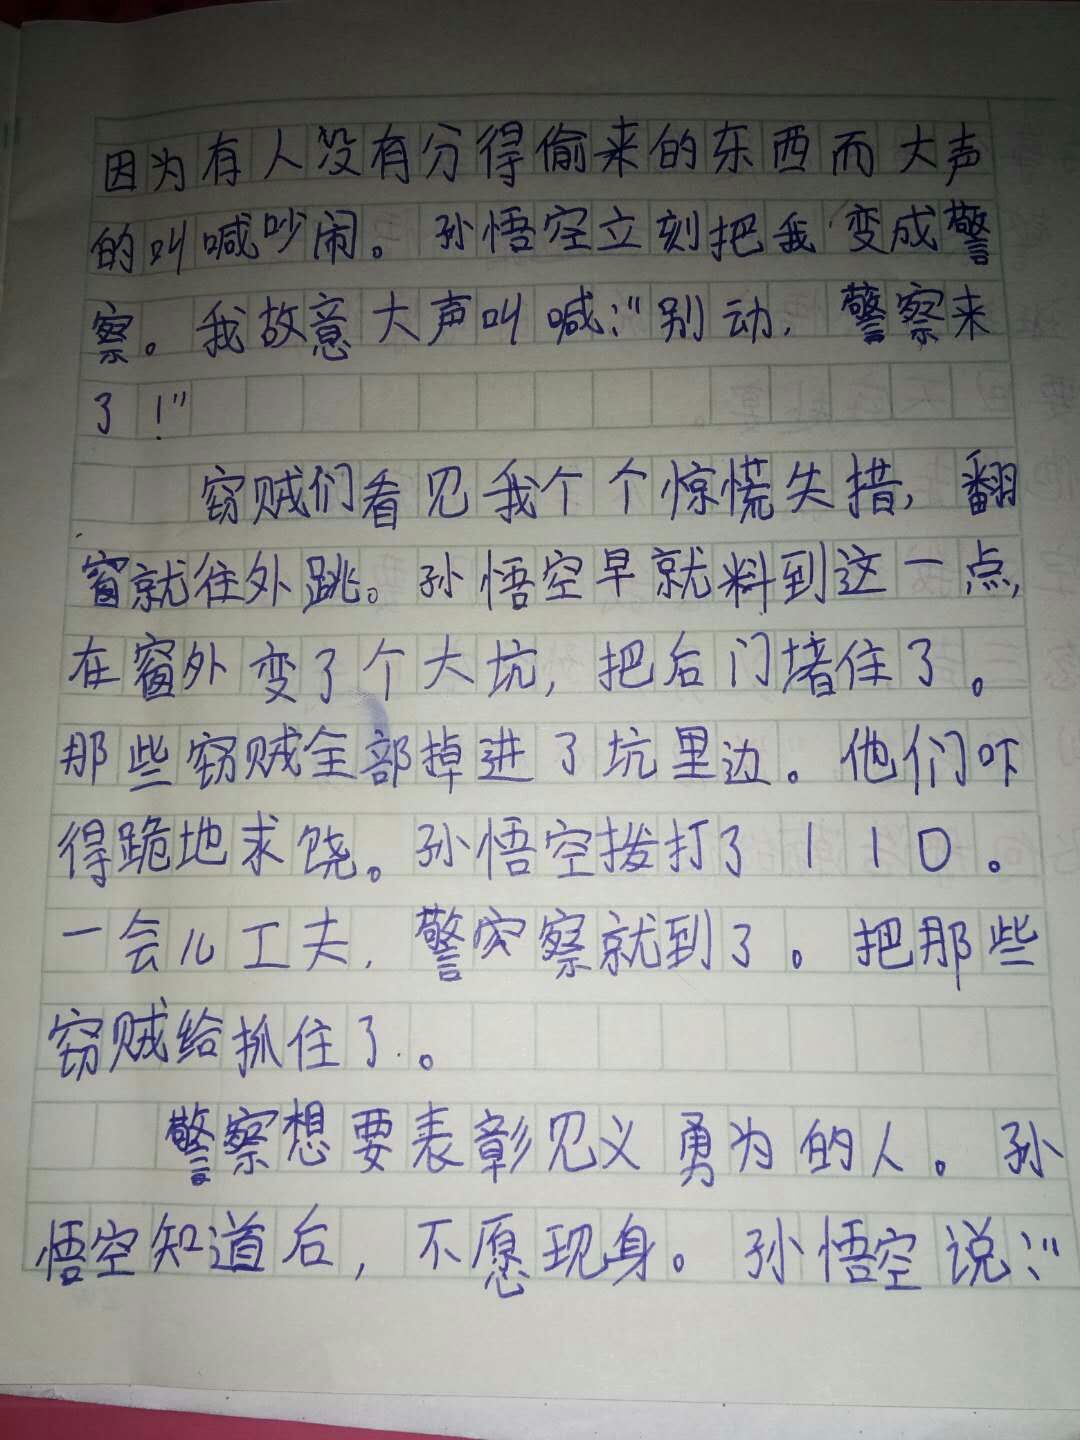 因为有人没有分得偷来的东西而大声
的叫喊吵闹。孙悟空立刻把我变成警
察。我故意大声叫喊:“别动，警察来
了！”
窃贼们看见我个个惊慌失措，翻
窗就往外跳。孙悟空早就料到这一点，
在窗外变了个大坑，把后门堵住了。
那些窃贼全部掉进了坑里边。他们吓
得跪地求饶。孙悟空拨打了110。
一会儿工夫，警察就到了。把那些
窃贼给抓住了。
警察想要表彰见义勇为的人。孙
悟空知道后，不愿现身。孙悟空说:“